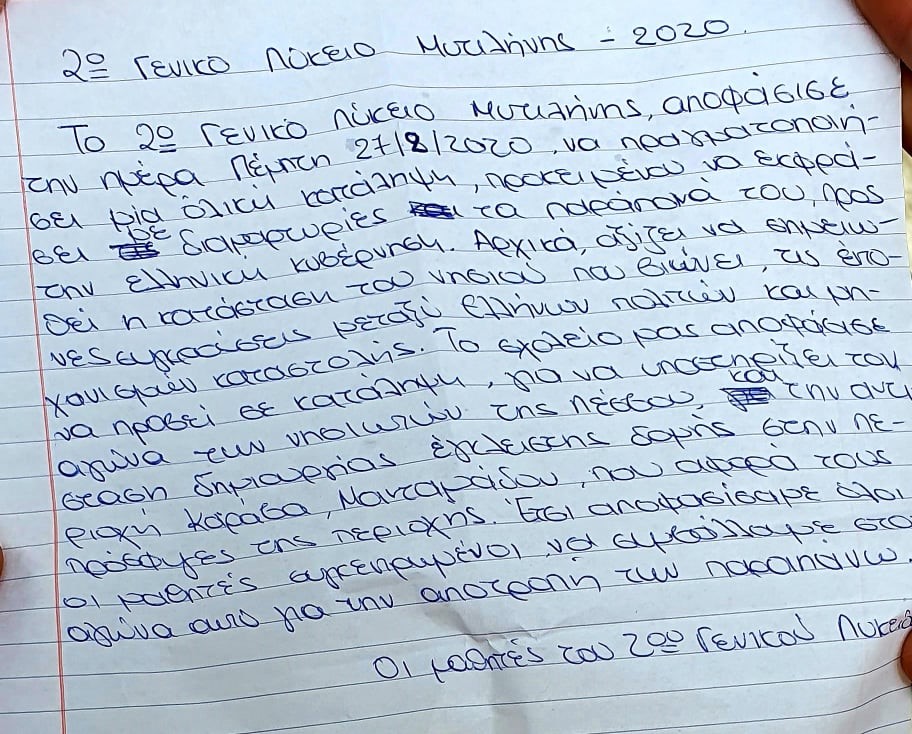 2º Γενικό Λύκειο Μυτιλήνης - 2020.
Το 2º Γενικό Λύκειο Μυτιλήνης, αποφάσισε
την ημέρα Πέμπτη 27/2/2020, να πραγματοποιή-
σει μία ολική κατάληψη, προκειμένου να εκφρά-
σει με διαμαρτυρίες τα παράπονά του, προς
την ελληνική κυβέρνηση. Αρχικά, αξίζει να σημειω-
θεί η κατάσταση του νησιού που βιώνει, τις έντο-
νες συγκρούσεις μεταξύ Ελλήνων πολιτών και μη-
χανισμών καταστολής. Το σχολείο μας αποφάσισε
να προβεί σε κατάληψη, για να υποστηρίξει τον
αγώνα των νησιωτών της Λέσβου, και την αντί
σταση δημιουργίας έγκλειστης δομής στην πε-
ριοχή Καράβα, Μανταμάδου, που αφορά τους
πρόσφυγες της περιοχής. Έτσι αποφασίσαμε όλοι
οι μαθητές συγκεντρωμένοι να συμβάλλουμε στο
αγώνα αυτό για την αποτροπή των παραπάνω.
Οι μαθητές του 2ου Γενικού Λυκείο